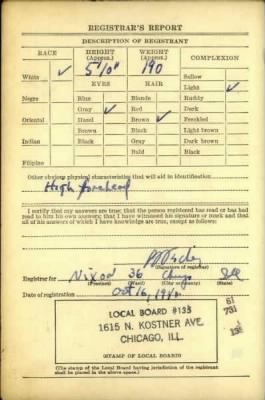 REGISTRAR'S REPORT
DESCRIPTION OF REGISTRANT
RACE HEIGHT (Approx.) WEIGHT (Approx.) COMPLEXION
5'10" 190
White ✓ Sallow
EYES HAIR Light ✓
Negro Blue Blonde Ruddy
Gray ✓ Red Dark
Oriental Hazel Brown ✓ Freckled
Brown Black Light brown
Indian Black Gray Dark brown
Bald Black
Filipino
Other obvious physical characteristics that will aid in identification
High forehead
I certify that my answers are true; that the person registered has read or has had
read to him his own answers; that I have witnessed his signature or mark and that
all of his answers of which I have knowledge are true, except as follows:
(Signature of registrar)
Registrar for Nixon 36 Chicago Ill
(Precinct) (Ward) (City or county) (State)
Date of registration Oct 16, 1940
LOCAL BOARD #133
1615 N. KOSTNER AVE
CHICAGO, ILL.
(STAMP OF LOCAL BOARD)
(The stamp of the Local Board having jurisdiction of the registrant
shall be placed in the above space.)